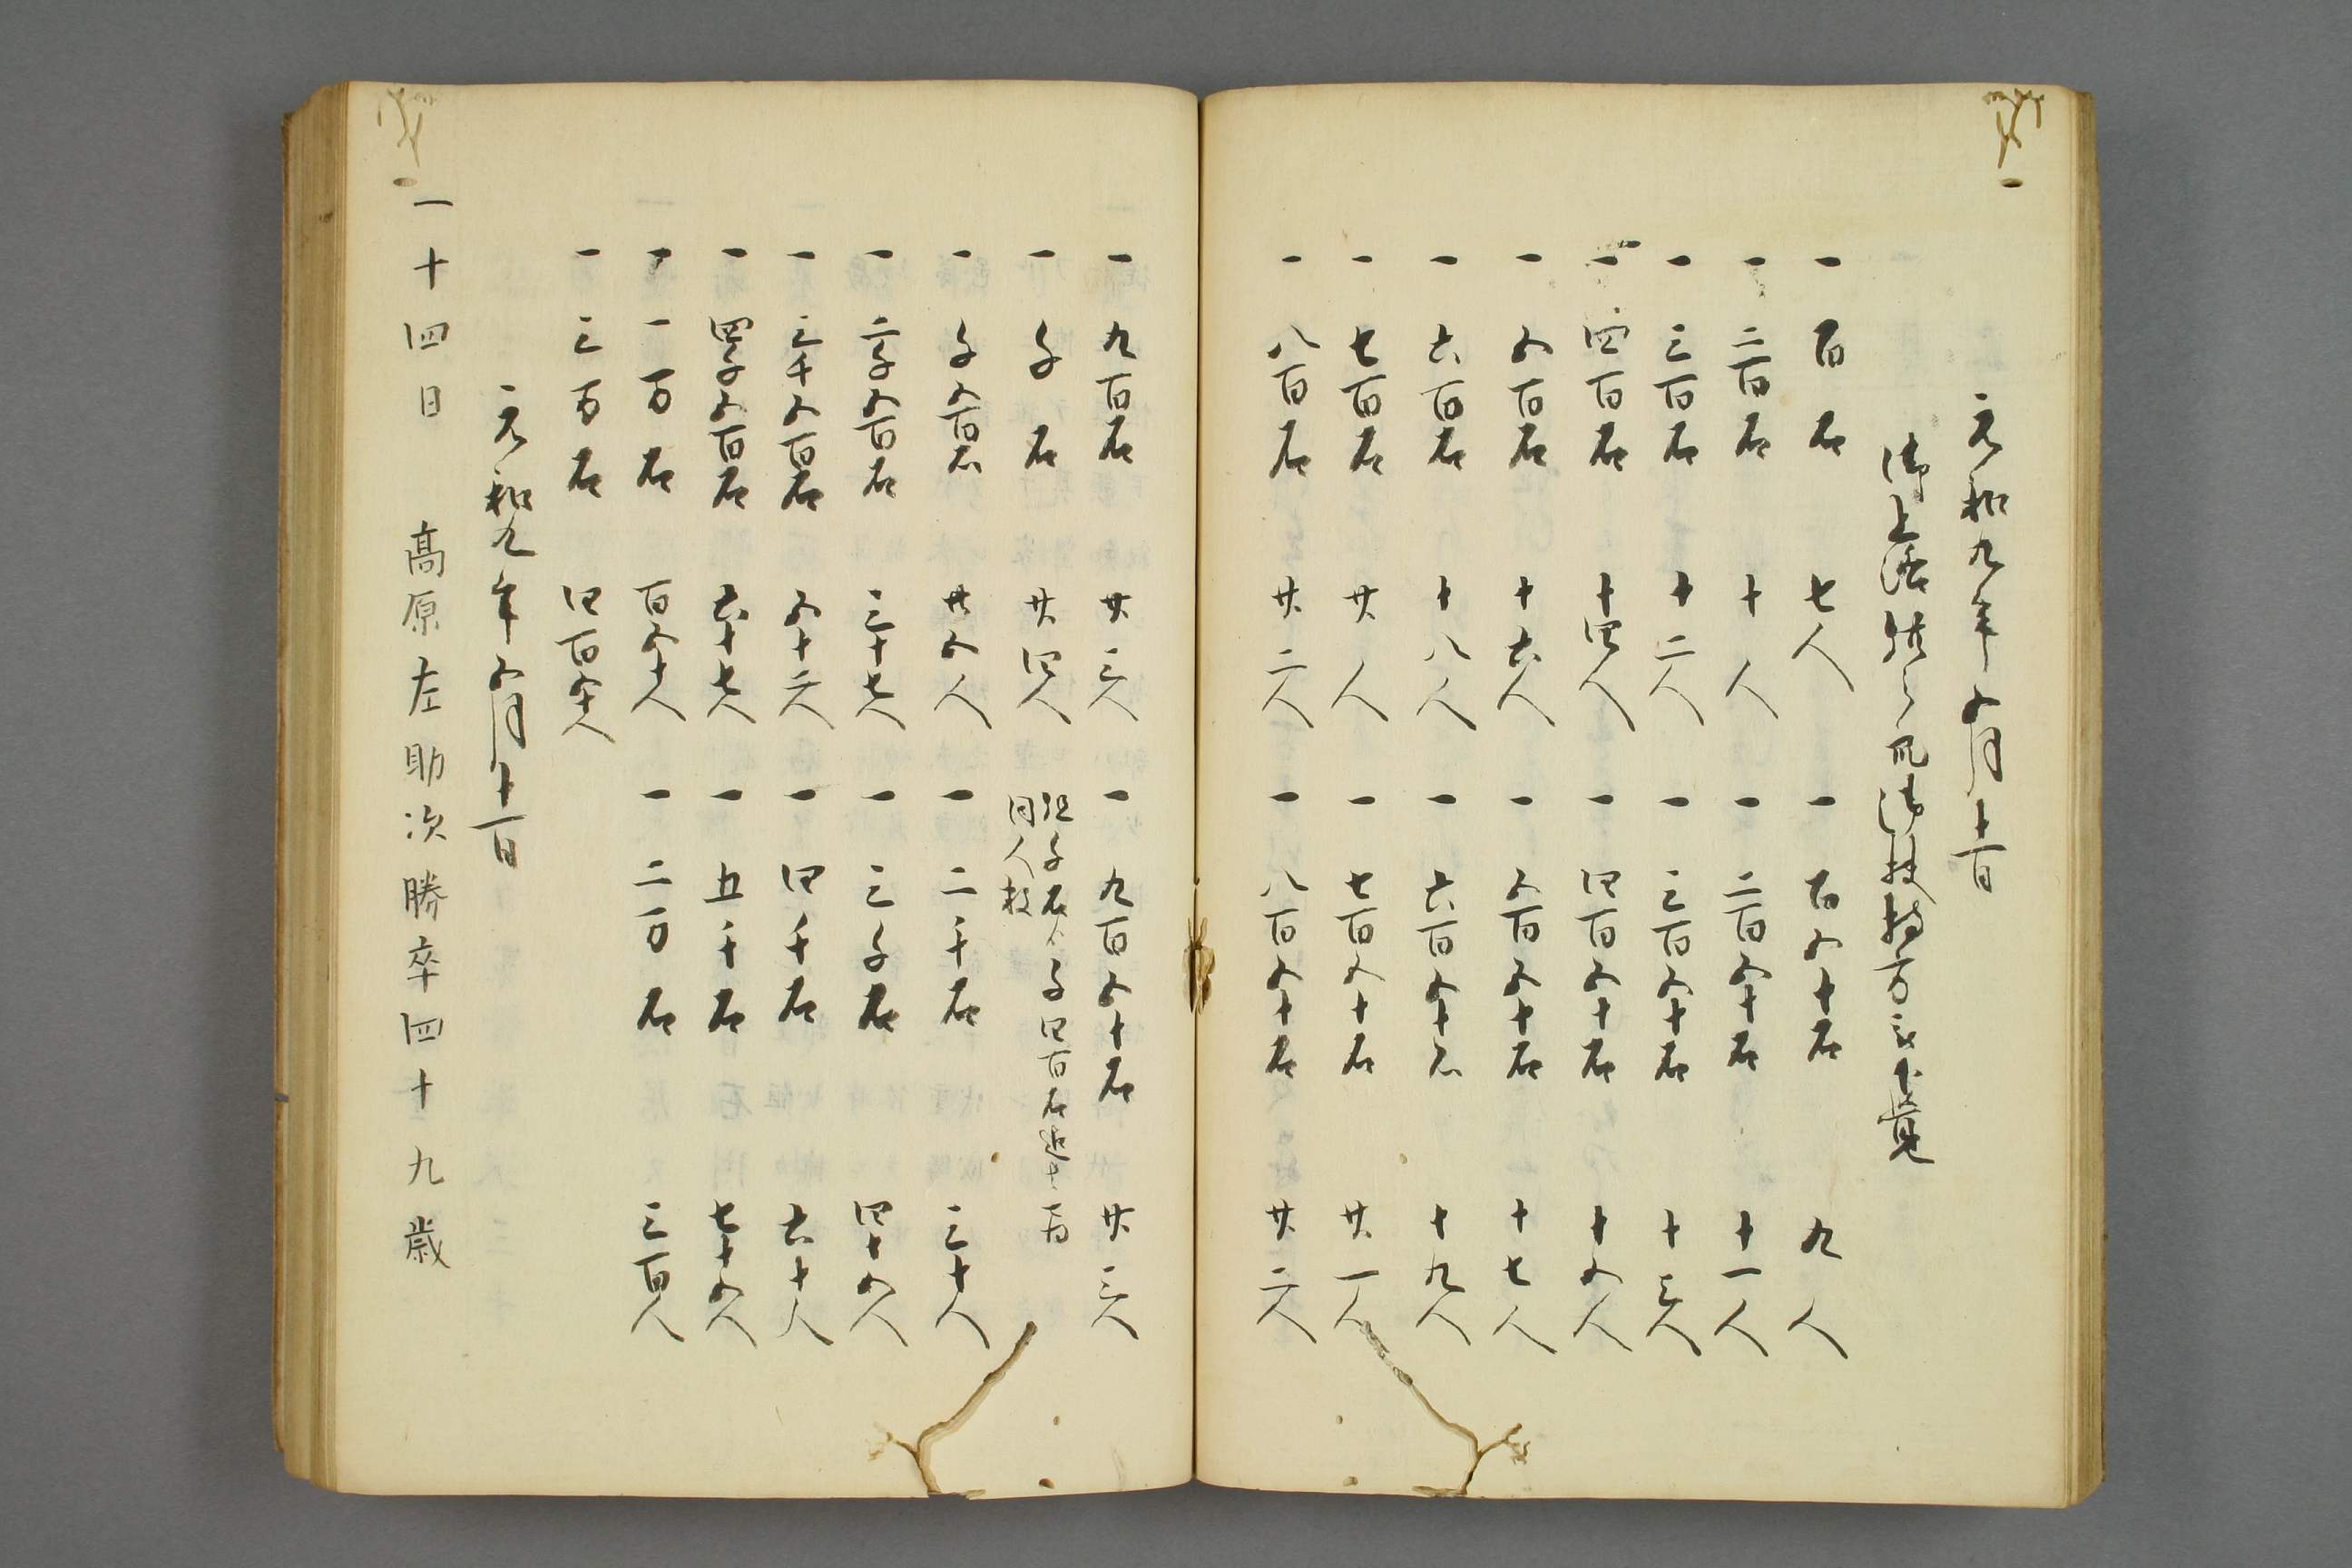 元和九年五月十一日
御上洛供之衆御扶持方被下覚
一 百石 七人 一 百五十石 九人
一 二百石 十人 一 二百五十石 十一人
一 三百石 十二人 一 三百五十石 十三人
一 四百石 十四人 一 四百五十石 十五人
一 五百石 十六人 一 五百五十石 十七人
一 六百石 十八人 一 六百五十石 十九人
一 七百石 廿人 一 七百五十石 廿一人
一 八百石 廿二人 一 八百五十石 廿二人
一 九百石 廿三人 一 九百五十石 廿三人
一 千石 廿四人 但千石ゟ千四百石迄ハ
同人数
一 千五百石 廿五人 一 二千石 三十人
一 二千五百石 三十七人 一 三千石 四十五人
一 三千五百石 五十二人 一 四千石 六十人
一 四千五百石 六十七人 一 五千石 七十五人
一 一万石 百五十人 一 二万石 三百人
一 三万石 四百五十人
元和九年五月十一日
一十四日 高原左助次勝卒四十九歳